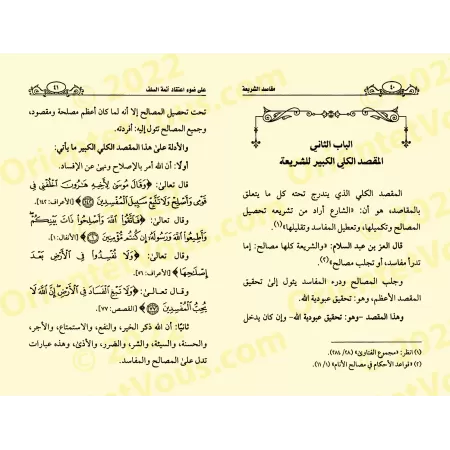 مقاصد الشريعة
٤٠
الباب الثاني
المقصد الكلي الكبير للشريعة
المقصد الكلي الذي يندرج تحته كل ما يتعلق
بالمقاصد، هو أن: «الشارع أراد من شريعته تحصيل
المصالح وتكميلها، وتعطيل المفاسد وتقليلها»(١).
قال العز بن عبد السلام: «والشريعة كلها مصالح: إما
تدرأ مفاسد، أو تجلب مصالح»(٢).
وجلب المصالح ودرء المفاسد يئول إلى تحقيق
المقصد الأعظم، وهو: تحقيق عبودية الله.
وهذا المقصد -وهو: تحقيق عبودية الله- وإن كان يدخل
(١) انظر: «مجموع الفتاوى»
(٢) «قواعد الأحكام في مصالح الأنام» (١/ ١١).
على ضوء اعتقاد أئمة السلف
٤١
تحت تحصيل المصالح إلا أنه لما كان أعظم مصلحة ومقصود،
وجميع المصالح تئول إليه: أفردته.
والأدلة على هذا المقصد الكلي الكبير ما يأتي:
أولًا: أن الله أمر بالإصلاح ونهى عن الإفساد.
قال تعالى: ﴿وَقَالَ مُوسَىٰ لِأَخِيهِ هَٰرُونَ ٱخْلُفْنِي فِي
قَوْمِي وَأَصْلِحْ وَلَا تَتَّبِعْ سَبِيلَ ٱلْمُفْسِدِينَ﴾ [الأعراف: ١٤٢].
وقال تعالى: ﴿فَٱتَّقُوا۟ ٱللَّهَ وَأَصْلِحُوا۟ ذَاتَ بَيْنِكُمْ
وَأَطِيعُوا۟ ٱللَّهَ وَرَسُولَهُۥٓ إِن كُنتُم مُّؤْمِنِينَ﴾ [الأنفال: ١].
وقال تعالى: ﴿وَلَا تُفْسِدُوا۟ فِي ٱلْأَرْضِ بَعْدَ
إِصْلَٰحِهَا﴾ [الأعراف: ٥٦].
وقال تعالى: ﴿وَلَا تَبْغِ ٱلْفَسَادَ فِي ٱلْأَرْضِ إِنَّ ٱللَّهَ لَا
يُحِبُّ ٱلْمُفْسِدِينَ﴾ [القصص: ٧٧].
ثانيًا: أن الله ذكر الخير، والنفع، والاستمتاع، والأجر،
والحسنة، والسيئة، والشر، والضرر، والأذى، وهذه عبارات
تدل على المصالح والمفاسد.
© 2022
OrientVous.com